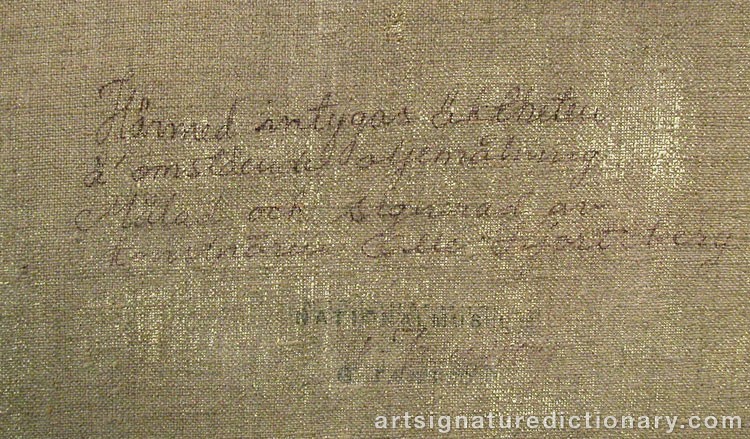 Härmed intygas äktheten
å omstående oljemålning
Målad och signerad av
konstnären berg
NATIONALMUS
artsignaturedictionary.com